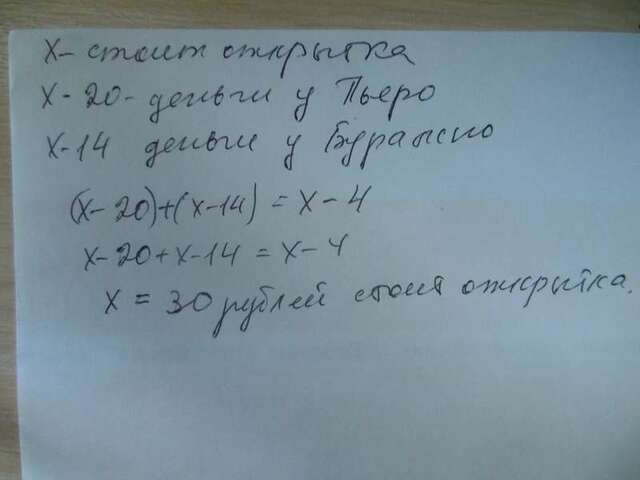 х- стоит открытка
х - 20 - деньги у Пьеро
х-14 деньги у Буратино
(х- 20)+(х-14) = х - 4
х-20+х-14 = х-4
х = 30 рублей стоит открытка.